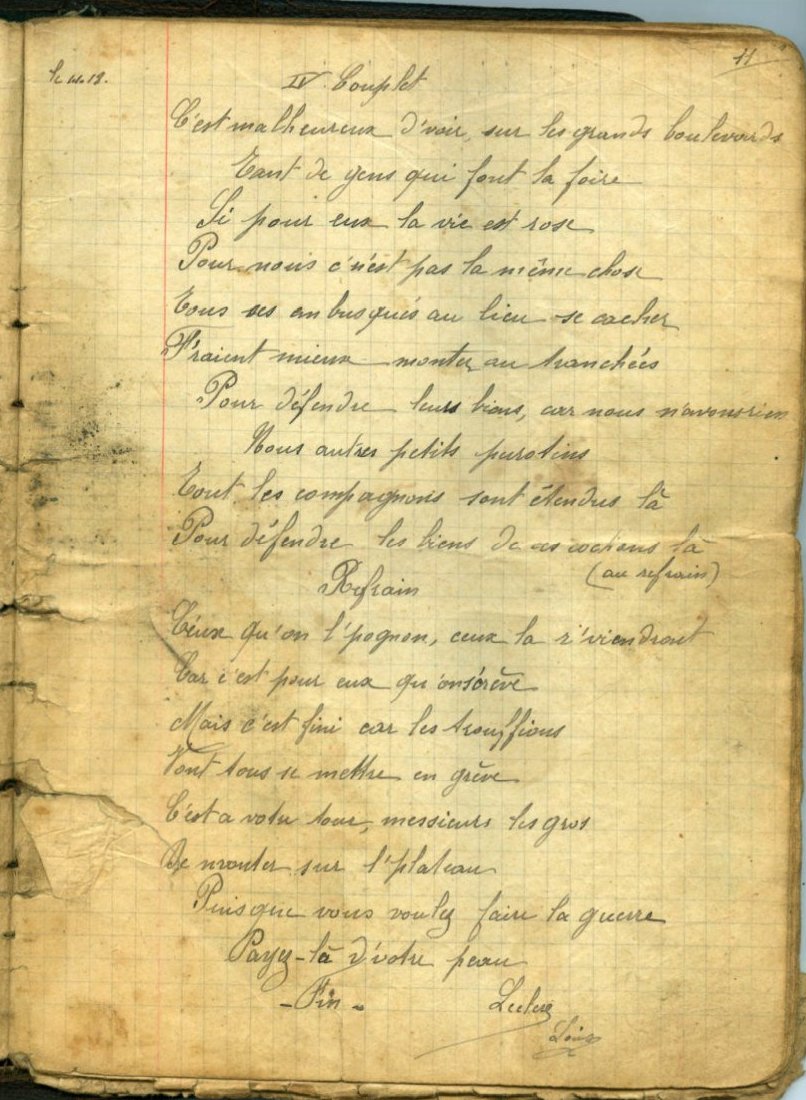 11
IV Couplet
C'est malheureux d'voir sur les grands boulevards
Tant de gens qui font la foire
Si pour eux la vie est rose
Pour nous c'n'est pas la même chose
Tous ses enbusqués au lieu se cacher
F'raient mieux monter au tranchées
Pour défendre leurs biens, car nous n'avons rien
Nous autres petits purotins
Tout les compagnons sont étendus là
Pour défendre les biens de ces cochons là
(au refrain)
Refrain
Ceux qu'on l'pognon, ceux la r'viendront
Car c'est pour eux qu'on s'crève
Mais c'est fini car les trouffions
Vont tous se mettre en grève
C'est a votre tour, messieurs les gros
De monter sur l'plateau
Puisque vous voulez faire la guerre
Payez-là d'votre peau
- Fin -
Leclerc
Louis